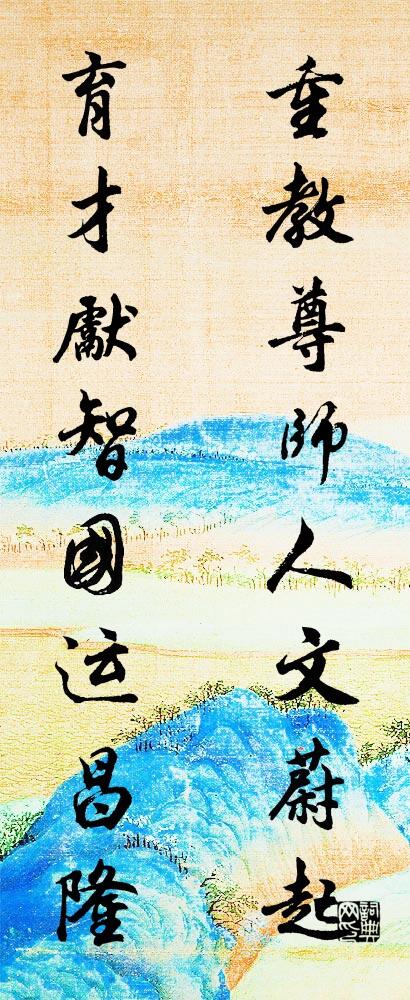 重教尊師人文蔚起
育才獻智國运昌隆